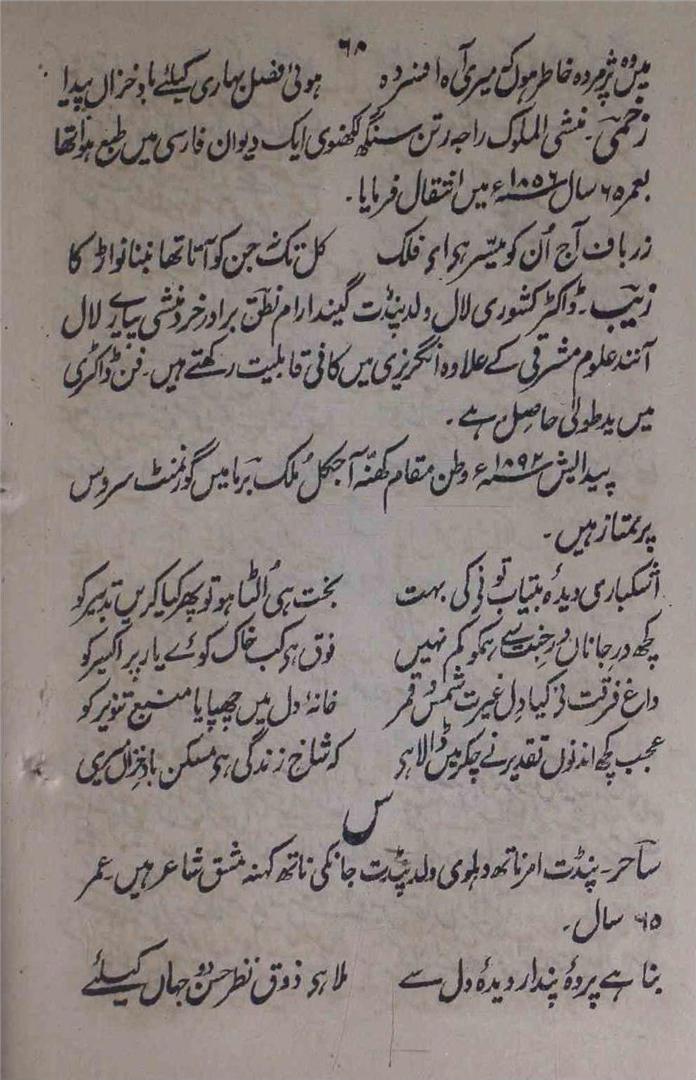 ٦٨
میں وہ پژمردہ خاطر ہوں کہ میری آہ افسردہ ہوئی فصل بہاری کیلئے بادِ خزاں پیدا
زخمی۔ منشی الملوک راجہ رتن سنگھ لکھنوی ایک دیوان فارسی میں طبع ہوا تھا
بعمر ٦٥ سال ۱۸۵٦ء میں انتقال فرمایا۔
زرباف آج اُن کو میسّر ہی اے فلک کل تک جن کو آتا تھا بننا نواڑ کا
زیب۔ ڈاکٹر کشوری لال ولد پنڈت گیندا رام نطق برادر خرد منشی پیارے لال
آنند علوم مشرقی کے علاوہ انگریزی میں کافی قابلیت رکھتے ہیں۔ فن ڈاکٹری
میں ید طولیٰ حاصل ہے۔
پیدایش ۱۸۹۲ء وطن مقام کھنّہ آجکل مُلک برما میں گورنمنٹ سروس
پر ممتاز ہیں۔
اشکباری دیدۂ بیتاب تو نی کی بہت بخت ہی اُلٹا ہو تو پھر کیا کریں تدبیر کو
کچھ درِ جاناں درِ جنت سے ہمکو کم نہیں فوق ہی کب خاک کوئے یار پر اکسیر کو
داغ فرقت نی کیا دِل غیرت شمس و قمر خانۂ دل میں چھپایا منبع تنویر کو
عجب کچھ اندنوں تقدیر نے چکر میں ڈالا ہی کہ شاخِ زندگی ہی مسکن بادِ خزاں میری
س
ساحر۔ پنڈت امر ناتھ دہلوی ولد پنڈت جانکی ناتھ کہنہ مشق شاعر ہیں۔ عمر
٦٥ سال۔
بنا ہے پردۂ پندار دیدۂ دل سے ملا ہی ذوق نظر حسن دو جہاں کیلئے